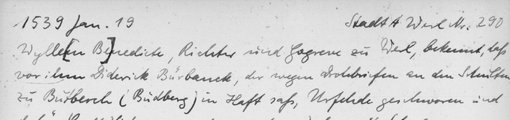 1539 Jan. 19 StadtA Werl Nr. 290
Wylle[n Be]nedicte, Richter und Gogreve zu Werl, bekennt, daß
vor ihm Diderick Burbanck, der wegen Drohbriefen an den Schulten
zu Butberch (Büdberg) in Haft saß, Urfehde geschworen und